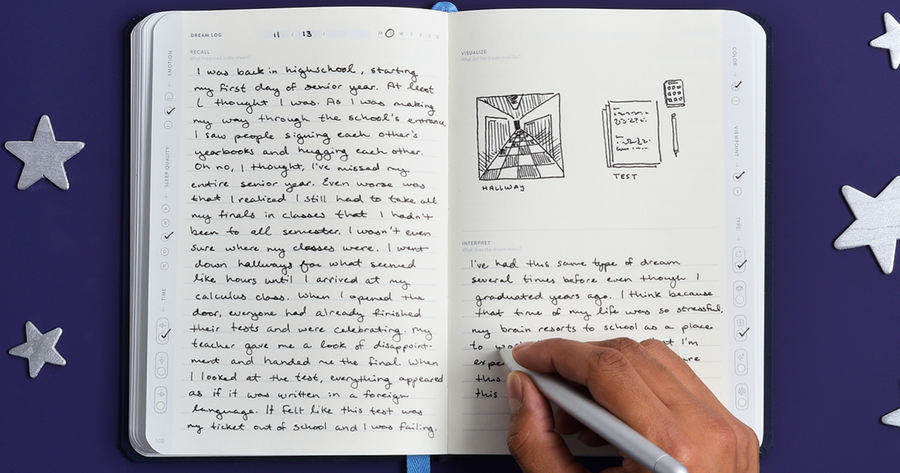 DREAM LOG
11 13
RECALL
I was back in highschool, starting
my first day of senior year. At least
I thought I was. As I was making
my way through the school's entrance,
I saw people signing each other's
yearbooks and hugging each other.
Oh no, I thought, I've missed my
entire senior year. Even worse was
that I realized I still had to take all
my finals in classes that I hadn't
been to all semester. I wasn't even
sure where my classes were. I went
down hallways for what seemed
like hours until I arrived at my
calculus class. When I opened the
door, everyone had already finished
their tests and were celebrating. My
teacher gave me a look of disappoint-
ment and handed me the final. When
I looked at the test, everything appeared
as if it was written in a foreign
language. It felt like this test was
my ticket out of school and I was failing.
EMOTION
SLEEP QUALITY
TIME
VISUALIZE
HALLWAY
TEST
INTERPRET
I've had this same type of dream
several times before even though I
graduated years ago. I think because
that time of my life was so stressful,
my brain resorts to school as a place
to I'm
this
this
COLOR
VIEWPOINT
TYPE